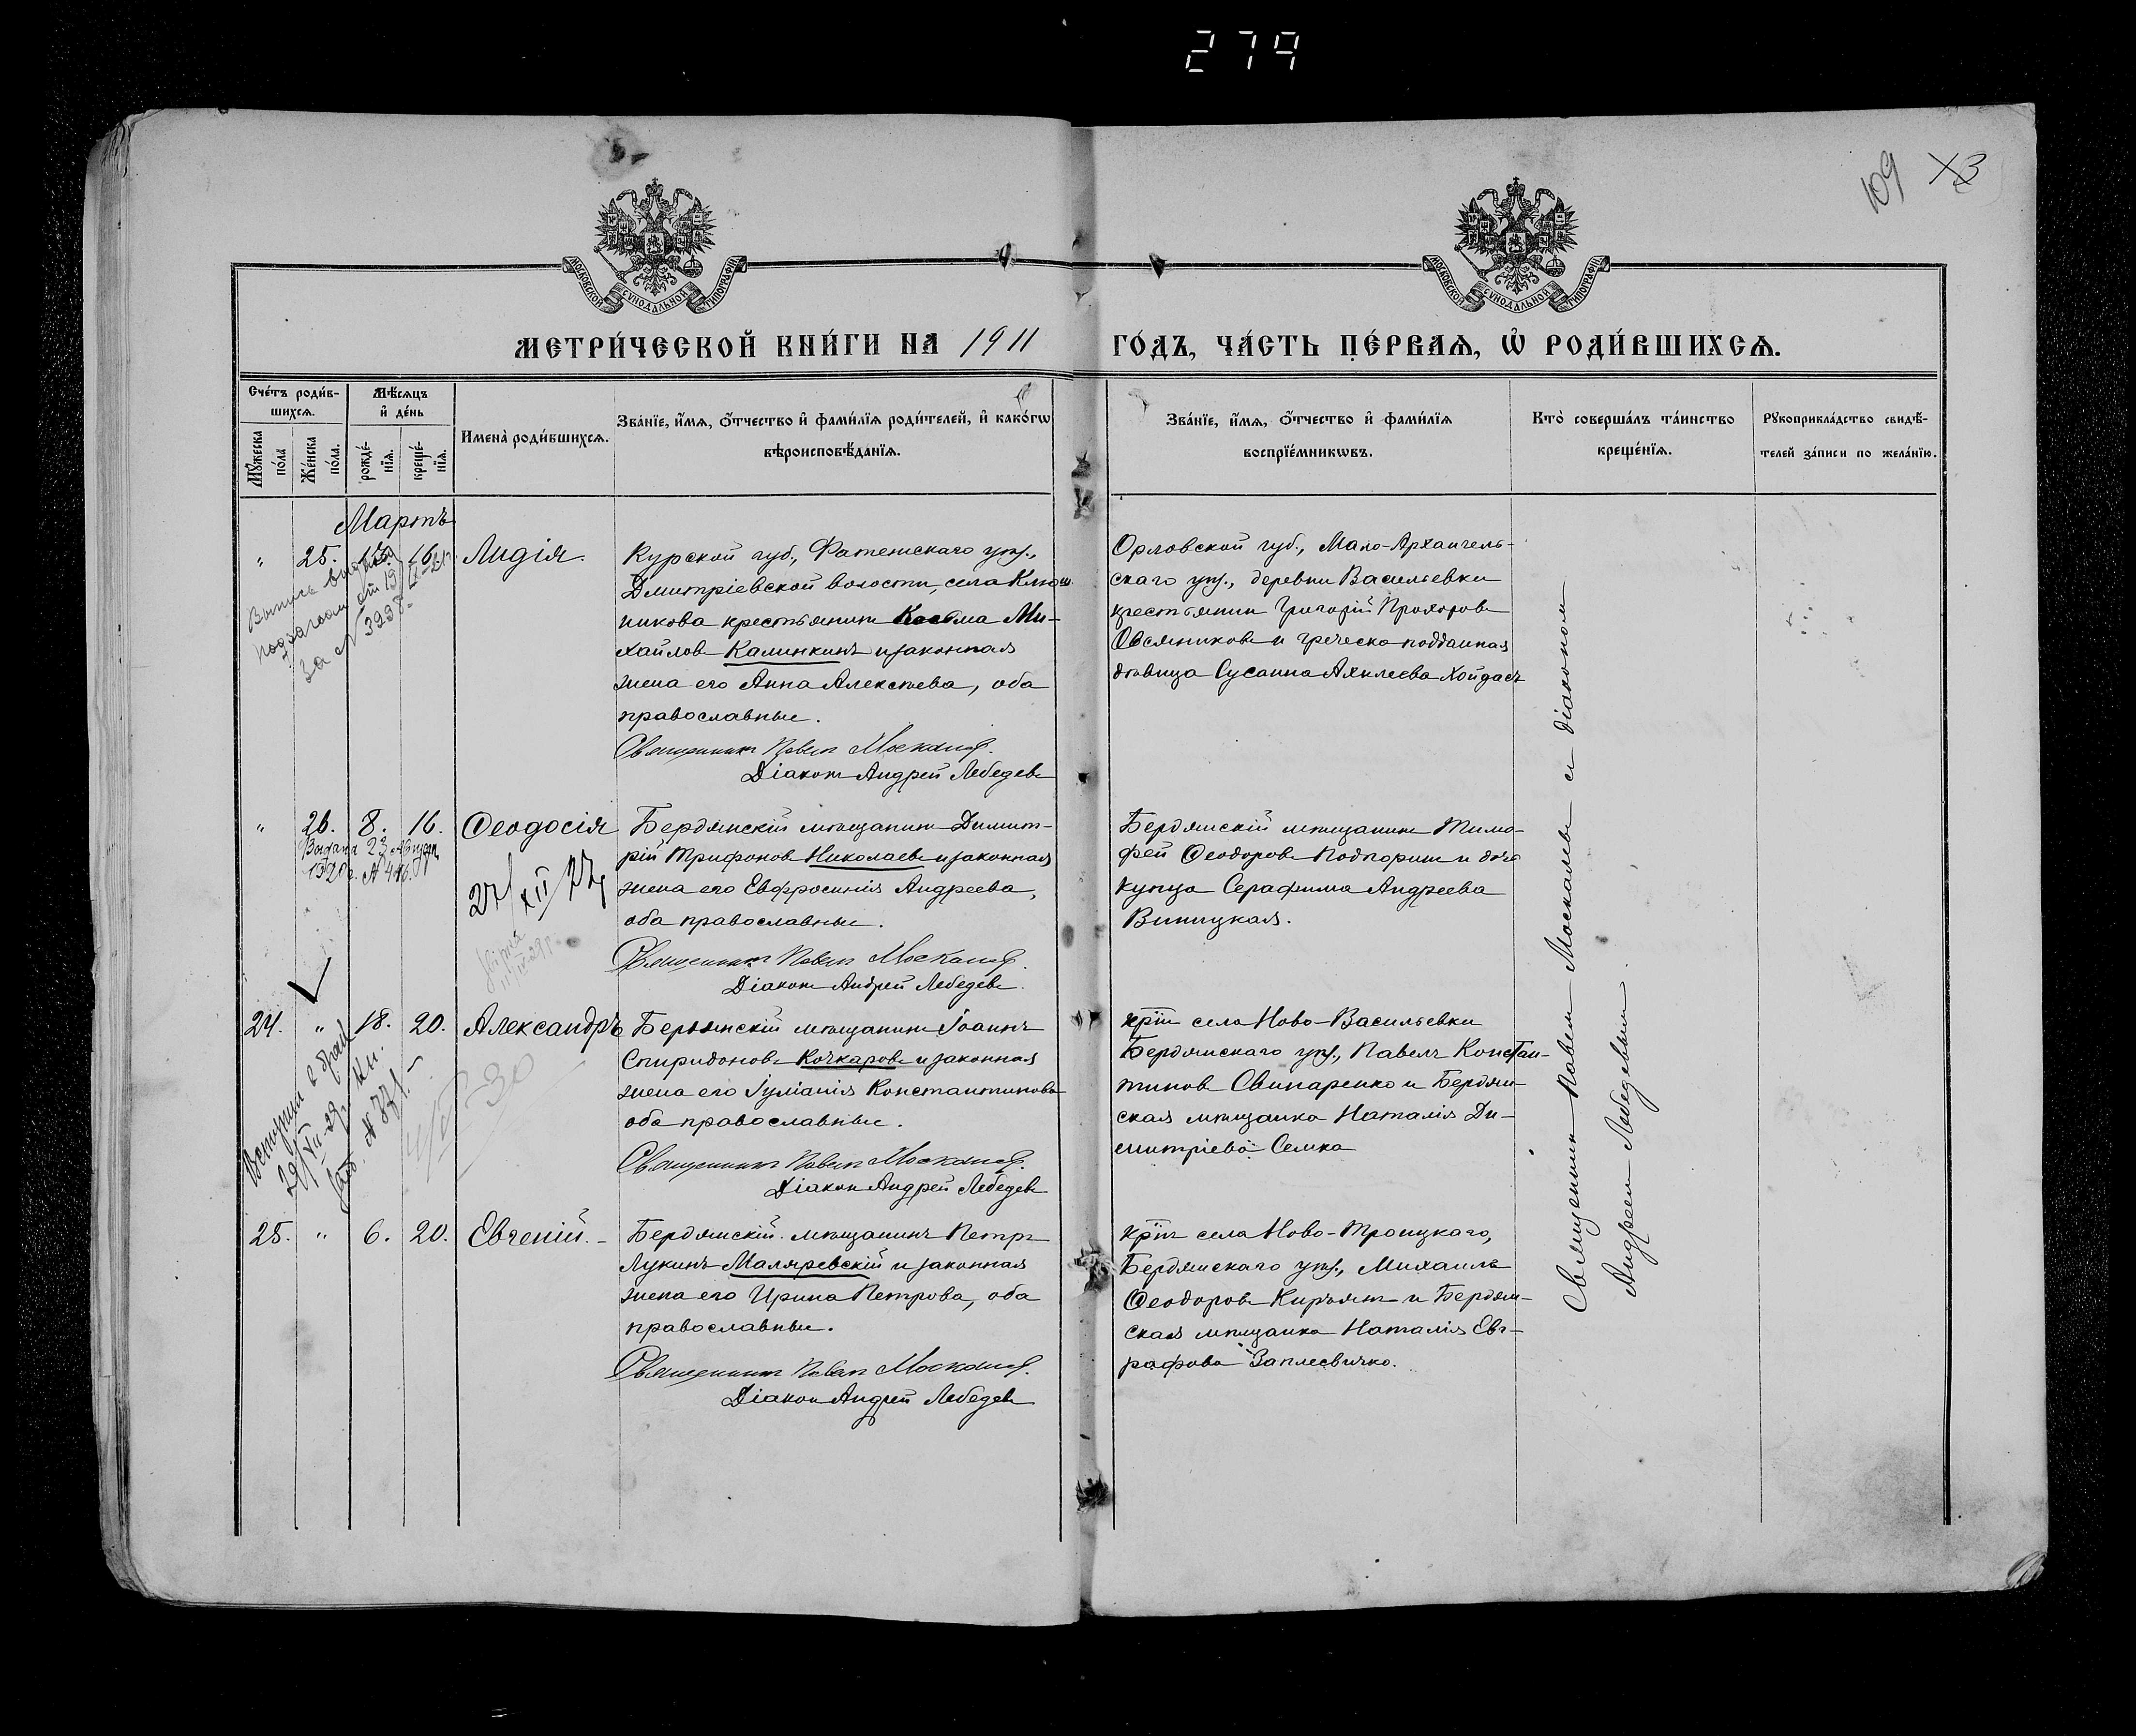 279
109
МОСКОВСКОЙ СУНОДАЛЬНОЙ ТИПОГРАФІИ
МОСКОВСКОЙ СУНОДАЛЬНОЙ ТИПОГРАФІИ
МЕТРИ́ЧЕСКОЙ КНИ́ГИ НА 1911 ГО́ДЪ, ЧА́СТЬ ПЕ́РВАѦ, Ѽ РОДИ́ВШИХСѦ.
Сче́тъ роди́в-
шихсѧ.
Мꙋ́жеска по́ла
Же́нска по́ла.
Мѣ́сѧцъ
и҆ де́нь
рожде́-
нїѧ.
креще́-
нїѧ.
Имена̀ роди́вшихсѧ.
Зва́нїе, и҆́мѧ, ѻ҆́тчество и҆ фами́лїѧ роди́телей, и҆ како́гѡ
вѣроисповѣ́данїѧ.
Зва́нїе, и҆́мѧ, ѻ҆́тчество и҆ фами́лїѧ
воспрїе́мникѡвъ.
Кто̀ соверша́лъ та́инство
креще́нїѧ.
Рꙋкоприкла́дство свидѣ́-
телей за́писи по жела́нїю.
Мартъ
" 25. 16. Лидія.
за № 3998.
Курской губ., Фатежскаго уѣз.,
Дмитріевской волости, села Ключ
никова крестьянинъ Косьма Ми-
хайловъ Калинкинъ и законная
жена его Анна Алексѣева, оба
православные.
Священникъ Павелъ Москалевъ.
Діаконъ Андрей Лебедевъ
Орловской губ., Мало-Архангель-
скаго уѣз., деревни Васильевки
крестьянинъ Григорій Прохоровъ
Овсянниковъ и греческо подданная
дѣвица Сусанна Ахилеева Хойдасъ
" 26. 8. 16. Ѳеодосія
Выдана 23
1920 г. № 446.
27/XII 27
Бердянскій мѣщанинъ Димит-
рій Трифоновъ Николаевъ и законная
жена его Евфросинія Андреева,
оба православные.
Священникъ Павелъ Москалевъ.
Діаконъ Андрей Лебедевъ.
Бердянскій мѣщанинъ Тимо-
фей Ѳеодоровъ Подпоринъ и дочь
купца Серафима Андреева
Виницкая.
24. " 18. 20. Александръ
Вступил в брак
Бердянскій мѣщанинъ Іоаннъ
Спиридоновъ Кочкаровъ и законная
жена его Іуліанія Константинова
оба православные.
Священникъ Павелъ Москалевъ.
Діаконъ Андрей Лебедевъ
крⷭ҇інъ села Ново-Васильевки
Бердянскаго уѣз., Павелъ Констан-
тиновъ Свинаренко и Бердян-
ская мѣщанка Наталія Ди-
митріева Семка
25. " 6. 20. Евгеній. -
Бердянскій мѣщанинъ Петръ
Лукинъ Маляревскій и законная
жена его Ирина Петрова, оба
православные.
Священникъ Павелъ Москалевъ.
Діаконъ Андрей Лебедевъ
крⷭ҇інъ села Ново-Троицкаго,
Бердянскаго уѣз., Михаилъ
Ѳеодоровъ Кирьянъ и Бердян-
ская мѣщанка Наталія Евг-
рафова
Священник Павел Москалевъ с діакономъ
Андреем Лебедевым.